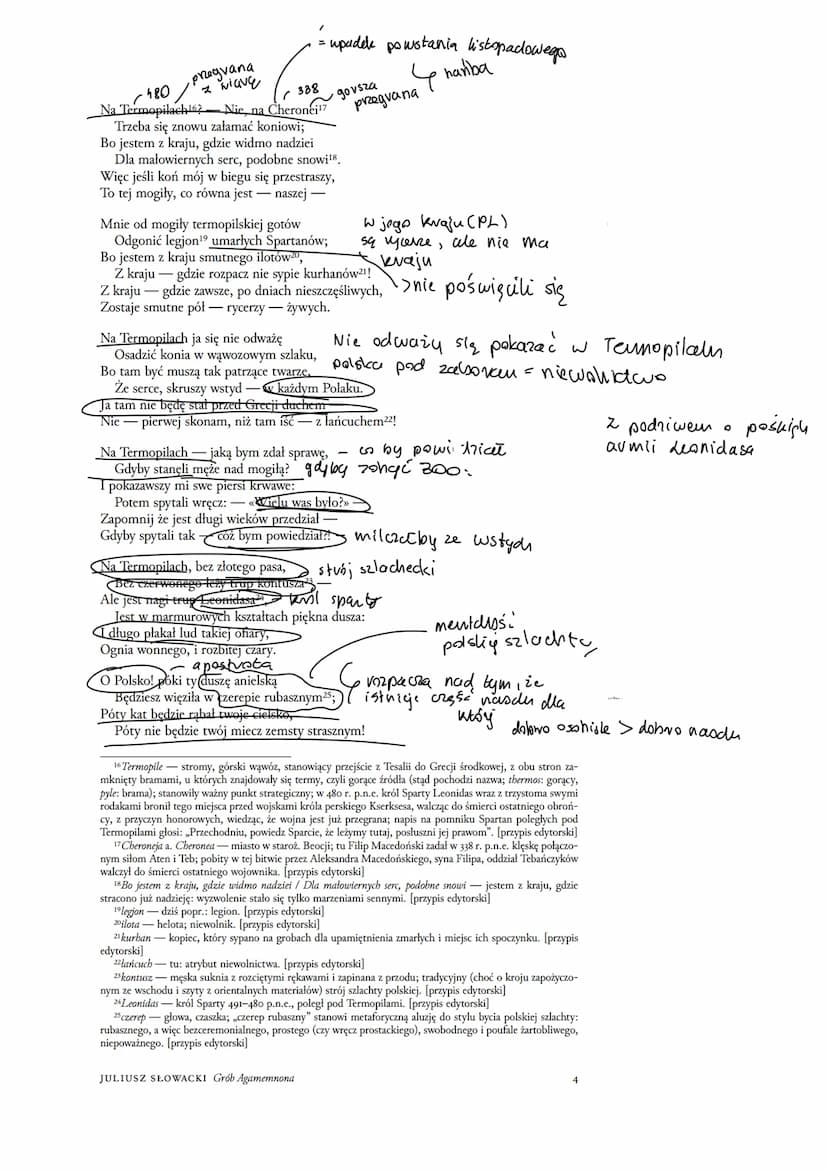 = upadek powstania listopadowego
↳ hańba
480
przegrana
z wiarą
338
gorsza
przegrana
Na Termopilach¹⁶? — Nie, na Cheronei¹⁷
Trzeba się znowu załamać koniowi;
Bo jestem z kraju, gdzie widmo nadziei
Dla małowiernych serc, podobne snowi¹⁸.
Więc jeśli koń mój w biegu się przestraszy,
To tej mogiły, co równa jest — naszej —
Mnie od mogiły termopilskiej gotów
Odgonić legjon¹⁹ umarłych Spartanów;
Bo jestem z kraju smutnego ilotów²⁰,
Z kraju — gdzie rozpacz nie sypie kurhanów²¹!
Z kraju — gdzie zawsze, po dniach nieszczęśliwych,
Zostaje smutne pół — rycerzy — żywych.
w jego kraju (PL)
są rycerze, ale nie ma
kraju
>nie poświęcili się
Na Termopilach ja się nie odważę
Osadzić konia w wąwozowym szlaku,
Bo tam być muszą tak patrzące twarze,
Że serce, skruszy wstyd — w każdym Polaku.
Ja tam nie będę stał przed Grecji duchem —
Nie — pierwej skonam, niż tam iść — z łańcuchem²²!
Nie odważy się pokazać w Termopilach
polska pod zaborem = niewolnictwo
z podziwem o poświę
armii Leonidasa
Na Termopilach — jaką bym zdał sprawę,
Gdyby stanęli męże nad mogiłą?
I pokazawszy mi swe piersi krwawe:
Potem spytali wręcz: — «Wielu was było?» —
Zapomnij że jest długi wieków przedział —
Gdyby spytali tak — cóż bym powiedział?!
– co by powiedział
gdyby 300:
milczałby ze wstydu
Na Termopilach, bez złotego pasa,
Bez czerwonego leży trup kontusza²³,—
Ale jest nagi trup Leonidasa²⁴,
Jest w marmurowych kształtach piękna dusza:
I długo płakał lud takiej ofiary,
Ognia wonnego, i rozbitej czary.
strój szlachecki
król sparty
mentalność
polskiej szlachty
– apostrofa
O Polsko! póki ty duszę anielską
Będziesz więziła w czerepie rubasznym²⁵;
Póty kat będzie rąbał twoje cielsko,
Póty nie będzie twój miecz zemsty strasznym!
rozpacza nad tym, że
istnieje część narodu dla
której
dobro osobiste > dobro narodu
¹⁶Termopile — stromy, górski wąwóz, stanowiący przejście z Tesalii do Grecji środkowej, z obu stron za-
mknięty bramami, u których znajdowały się termy, czyli gorące źródła (stąd pochodzi nazwa; thermos: gorący,
pyle: brama); stanowiły ważny punkt strategiczny; w 480 r. p.n.e. król Sparty Leonidas wraz z trzystoma swymi
rodakami bronił tego miejsca przed wojskami króla perskiego Kserksesa, walcząc do śmierci ostatniego obroń-
cy, z przyczyn honorowych, wiedząc, że wojna jest już przegrana; napis na pomniku Spartan poległych pod
Termopilami głosi: „Przechodniu, powiedz Sparcie, że leżymy tutaj, posłuszni jej prawom”. [przypis edytorski]
¹⁷Cheroneja a. Cheronea — miasto w staroż. Beocji; tu Filip Macedoński zadał w 338 r. p.n.e. klęskę połączo-
nym siłom Aten i Teb; pobity w tej bitwie przez Aleksandra Macedońskiego, syna Filipa, oddział Tebańczyków
walczył do śmierci ostatniego wojownika. [przypis edytorski]
¹⁸Bo jestem z kraju, gdzie widmo nadziei / Dla małowiernych serc, podobne snowi — jestem z kraju, gdzie
stracono już nadzieję: wyzwolenie stało się tylko marzeniami sennymi. [przypis edytorski]
¹⁹legjon — dziś popr.: legion. [przypis edytorski]
²⁰ilota — helota; niewolnik. [przypis edytorski]
²¹kurhan — kopiec, który sypano na grobach dla upamiętnienia zmarłych i miejsc ich spoczynku. [przypis
edytorski]
²²łańcuch — tu: atrybut niewolnictwa. [przypis edytorski]
²³kontusz — męska suknia z rozciętymi rękawami i zapinana z przodu; tradycyjny (choć o kroju zapożyczo-
nym ze wschodu i szyty z orientalnych materiałów) strój szlachty polskiej. [przypis edytorski]
²⁴Leonidas — król Sparty 491–480 p.n.e., poległ pod Termopilami. [przypis edytorski]
²⁵czerep — głowa, czaszka; „czerep rubaszny” stanowi metaforyczną aluzję do stylu bycia polskiej szlachty:
rubasznego, a więc bezceremonialnego, prostego (czy wręcz prostackiego), swobodnego i poufale żartobliwego,
niepoważnego. [przypis edytorski]
JULIUSZ SŁOWACKI Grób Agamemnona 4